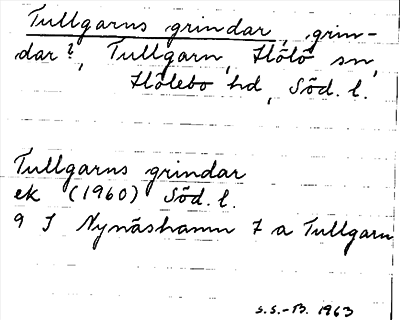 Tullgarns grindar, grin-
dar?, Tullgarn, Hölö sn,
Hölebo hd, Söd. l.
Tullgarns grindar
ek (1960) Söd. l.
9 I Nynäshamn 7 a Tullgarn
S.S.-B. 1963